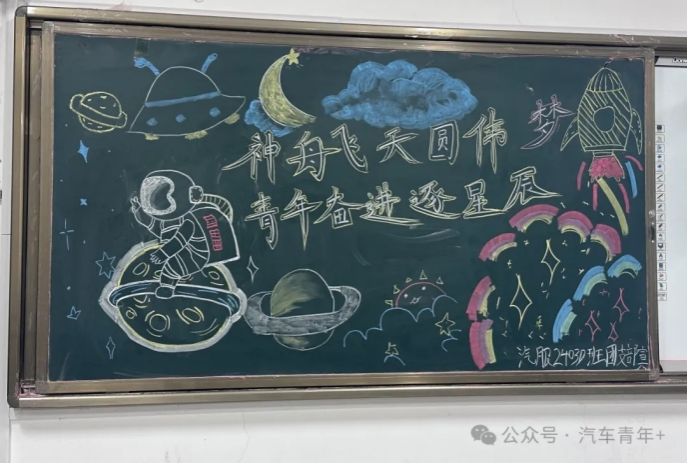 神舟飞天圆伟梦
青年奋进逐星辰
汽服24030班团支部宣
公众号·汽车青年+